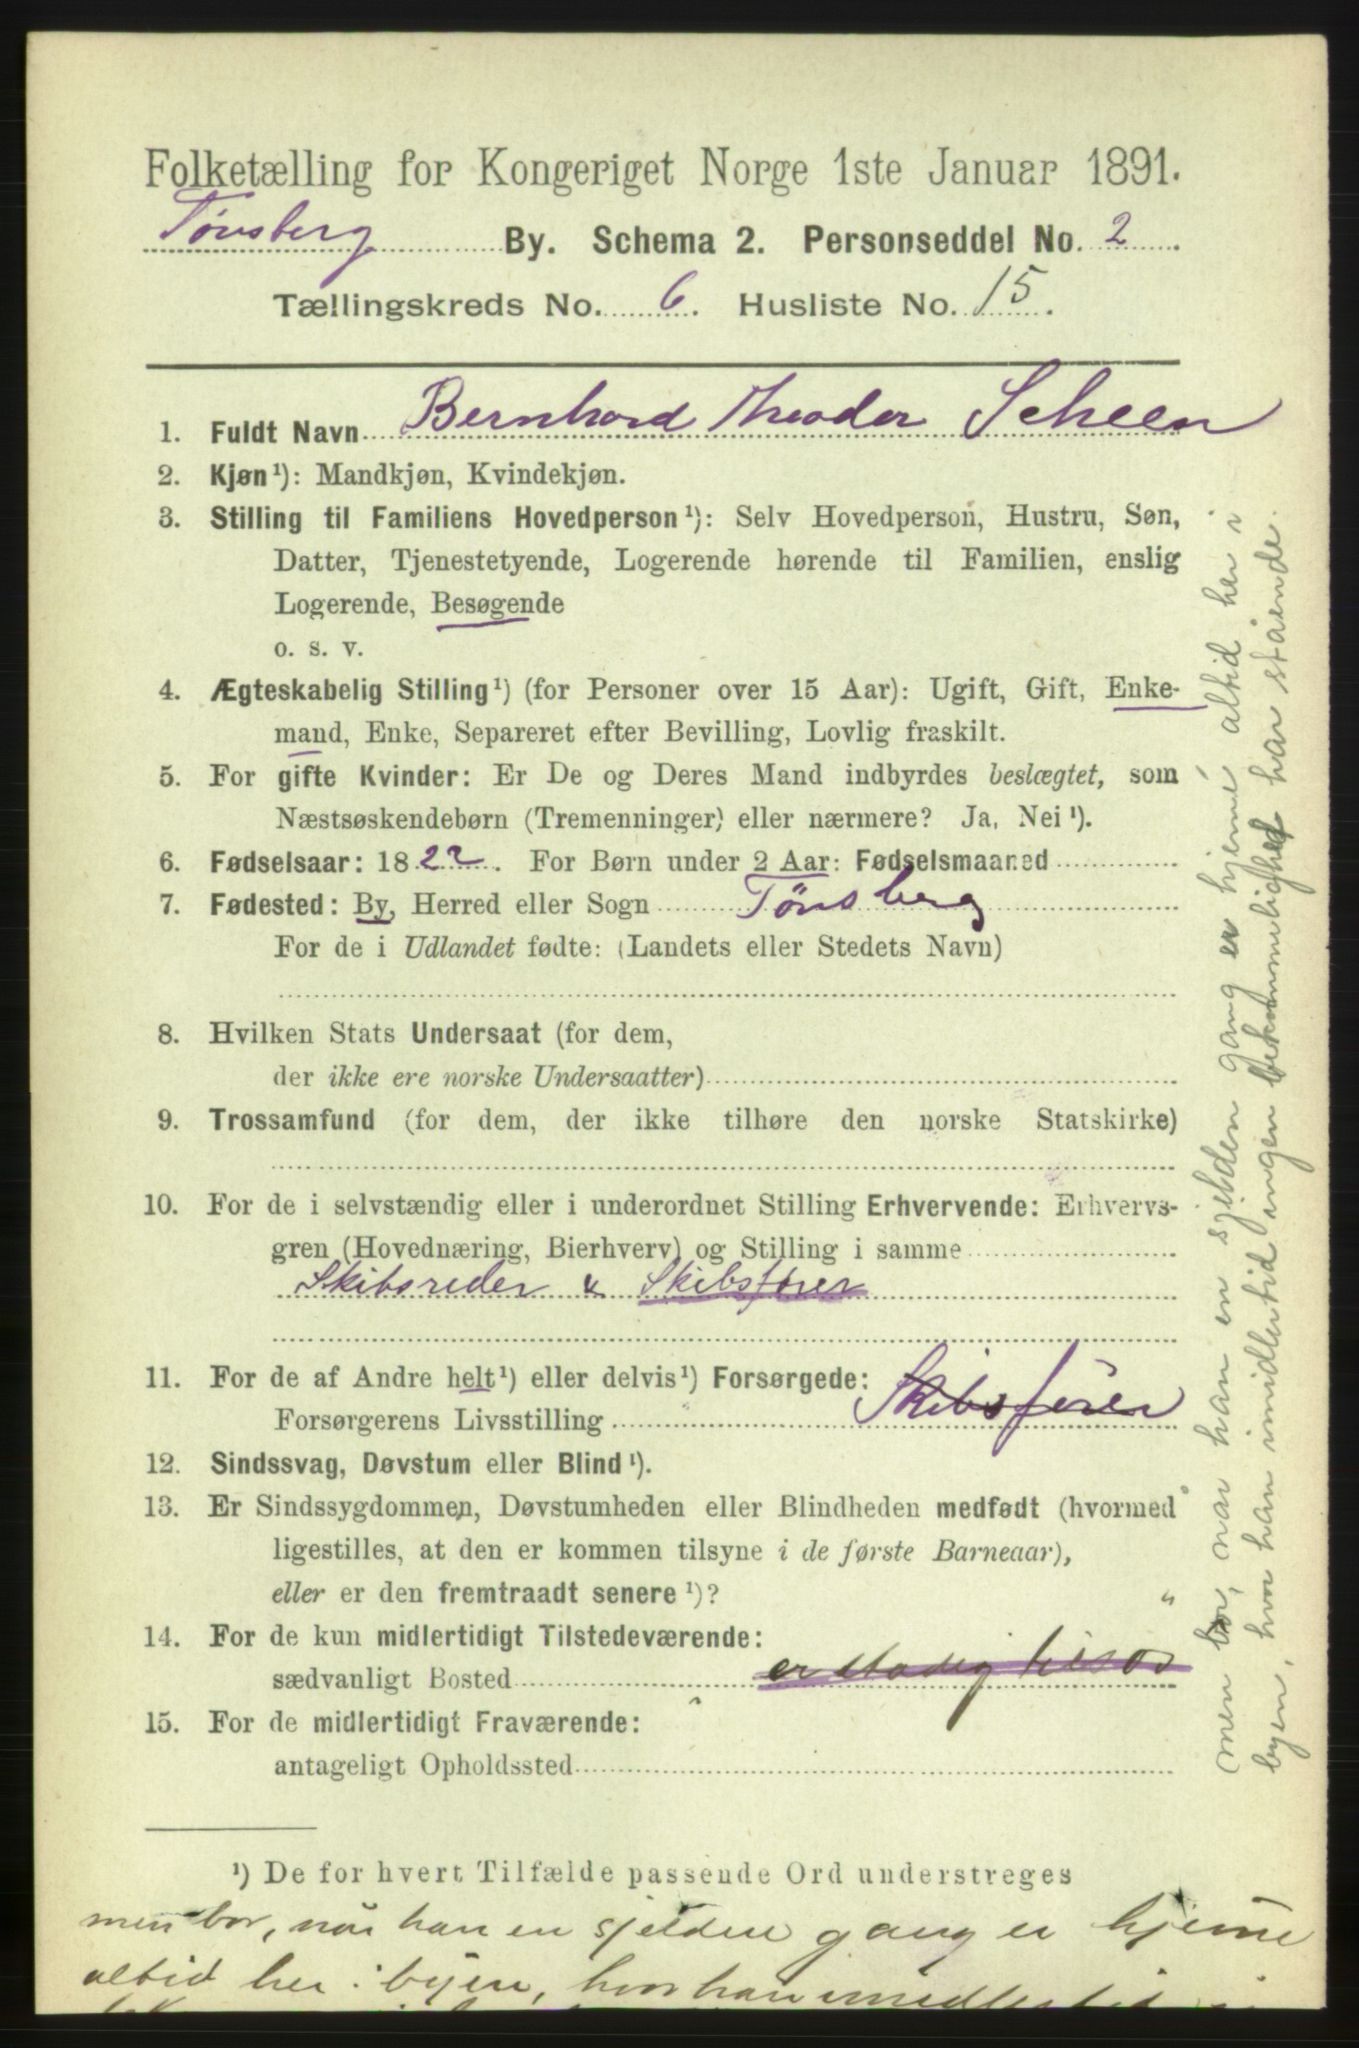 Folketælling for Kongeriget Norge 1ste Januar 1891.
Tønsberg By. Schema 2. Personseddel No. 2
Tællingskreds No. 6. Husliste No. 15.
1. Fuldt Navn Bernhard Theodor Scheen
2. Kjøn¹): Mandkjøn, Kvindekjøn.
3. Stilling til Familiens Hovedperson¹): Selv Hovedperson, Hustru, Søn,
Datter, Tjenestetyende, Logerende hørende til Familien, enslig
Logerende, Besøgende
o. s. v.
4. Ægteskabelig Stilling¹) (for Personer over 15 Aar): Ugift, Gift, Enke-
mand, Enke, Separeret efter Bevilling, Lovlig fraskilt.
5. For gifte Kvinder: Er De og Deres Mand indbyrdes beslægtet, som
Næstsøskendebørn (Tremenninger) eller nærmere? Ja, Nei¹).
6. Fødselsaar: 1822. For Børn under 2 Aar: Fødselsmaaned
7. Fødested: By, Herred eller Sogn Tönsberg
For de i Udlandet fødte: (Landets eller Stedets Navn)
8. Hvilken Stats Undersaat (for dem,
der ikke ere norske Undersaatter)
9. Trossamfund (for dem, der ikke tilhøre den norske Statskirke)
10. For de i selvstændig eller i underordnet Stilling Erhvervende: Erhvervs-
gren (Hovednæring, Bierhverv) og Stilling i samme
Skibsreder & Skibsfører
11. For de af Andre helt¹) eller delvis¹) Forsørgede:
Forsørgerens Livsstilling Skibsfører
12. Sindssvag, Døvstum eller Blind¹).
13. Er Sindssygdommen, Døvstumheden eller Blindheden medfødt (hvormed
ligestilles, at den er kommen tilsyne i de første Barneaar),
eller er den fremtraadt senere¹)? "
14. For de kun midlertidigt Tilstedeværende:
sædvanligt Bosted er stadig tilsøs
15. For de midlertidigt Fraværende:
antageligt Opholdssted
¹) De for hvert Tilfælde passende Ord understreges
men bor, når han en sjelden gang er hjemme
altid her i byen, hvor han imidlertid
men bor, når han en sjelden gang er hjemme altid her i
byen, hvor han imidlertid ingen bekvemmelighed har stående.